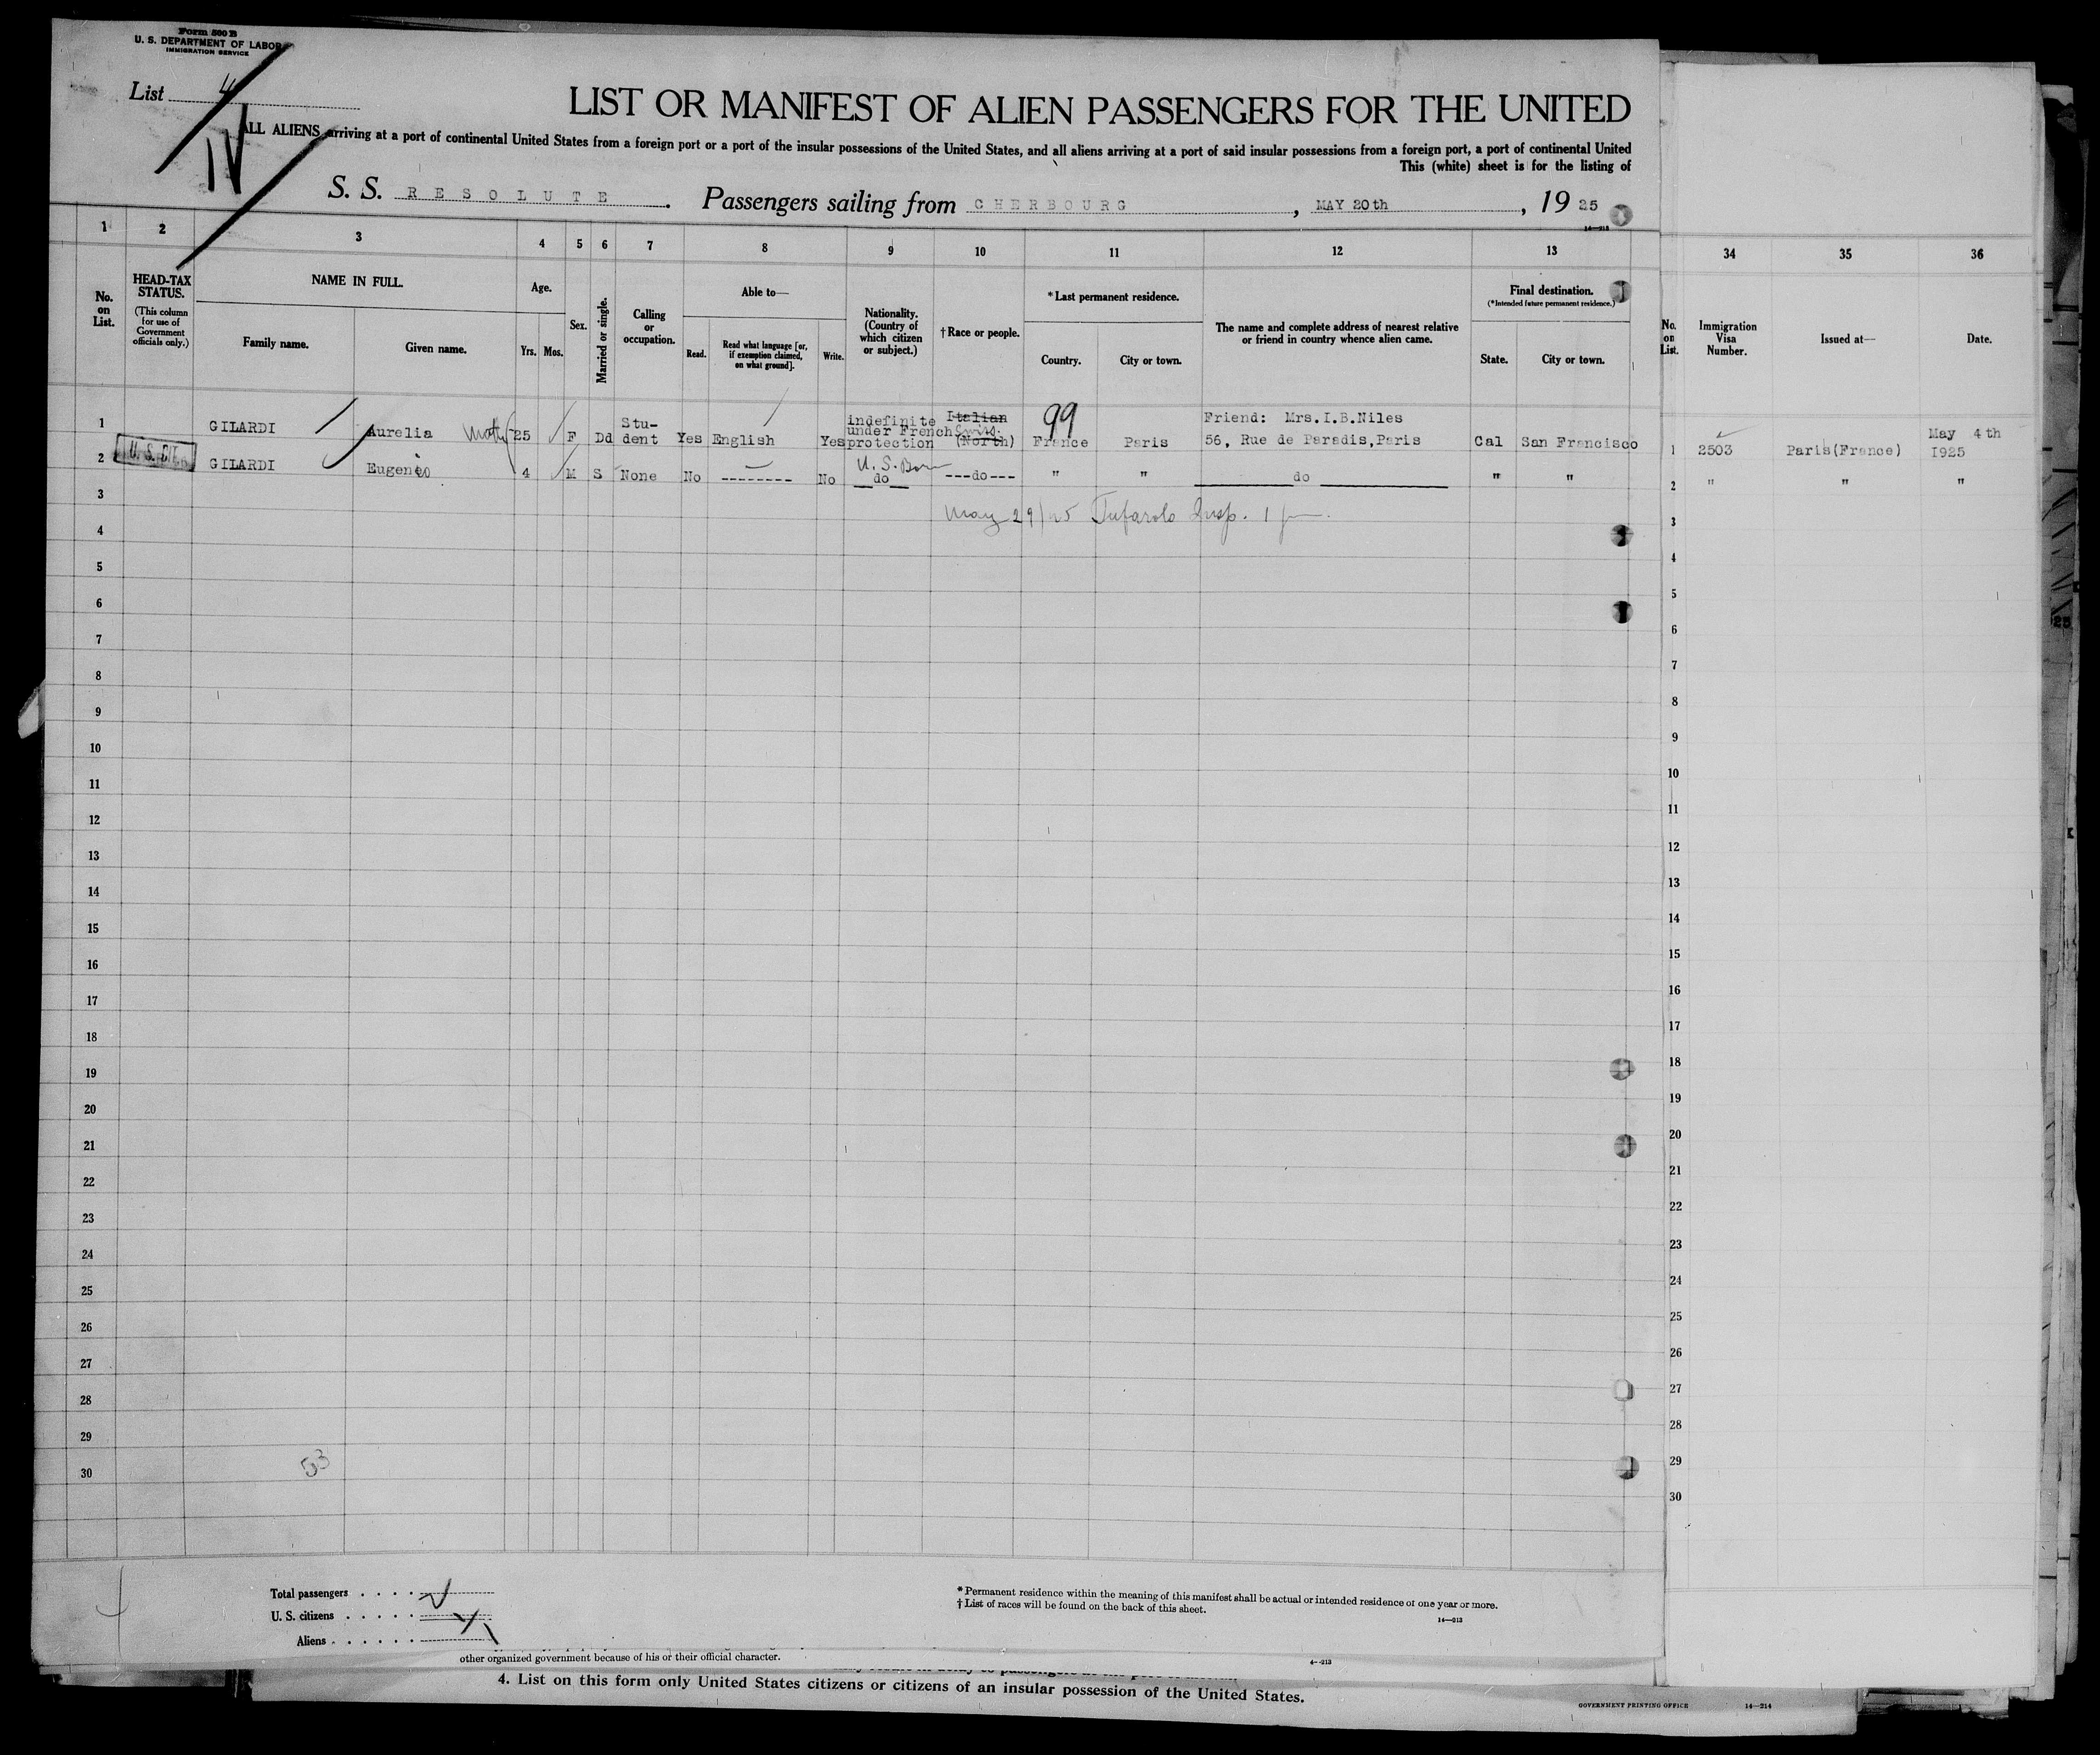 Form 500 B
U. S. DEPARTMENT OF LABOR
IMMIGRATION SERVICE
List 4
IV
LIST OR MANIFEST OF ALIEN PASSENGERS FOR THE UNITED
ALL ALIENS arriving at a port of continental United States from a foreign port or a port of the insular possessions of the United States, and all aliens arriving at a port of said insular possessions from a foreign port, a port of continental United
This (white) sheet is for the listing of
S. S. RESOLUTE. Passengers sailing from CHERBOURG, MAY 20th, 1925
14—213
1 2 3 4 5 6 7 8 9 10 11 12 13 34 35 36
No. on List.
HEAD-TAX STATUS.
(This column for use of Government officials only.)
NAME IN FULL.
Family name.
Given name.
Age.
Yrs. Mos.
Sex.
Married or single.
Calling or occupation.
Able to—
Read.
Read what language [or, if exemption claimed, on what ground].
Write.
Nationality. (Country of which citizen or subject.)
† Race or people.
* Last permanent residence.
Country.
City or town.
The name and complete address of nearest relative or friend in country whence alien came.
Final destination.
(* Intended future permanent residence.)
State.
City or town.
No. on List.
Immigration Visa Number.
Issued at—
Date.
1 GILARDI Aurelia 25 F Dd Student Yes English Yes indefinite under French protection Italian (North) Swiss 99 France Paris Friend: Mrs.I.B.Niles 56, Rue de Paradis,Paris Cal San Francisco 1 2503 Paris(France) May 4th 1925
2 GILARDI Eugenio 4 M S None No -------- No U. S. Born do ---do--- " " do " " 2 " " "
3 May 29/25 Insp. 3
4 4
5 5
6 6
7 7
8 8
9 9
10 10
11 11
12 12
13 13
14 14
15 15
16 16
17 17
18 18
19 19
20 20
21 21
22 22
23 23
24 24
25 25
26 26
27 27
28 28
29 29
30 30
53
Total passengers . . . .
U. S. citizens . . . . .
Aliens . . . . . .
* Permanent residence within the meaning of this manifest shall be actual or intended residence of one year or more.
† List of races will be found on the back of this sheet.
14—213
other organized government because of his or their official character.
4. List on this form only United States citizens or citizens of an insular possession of the United States.
GOVERNMENT PRINTING OFFICE 14—214